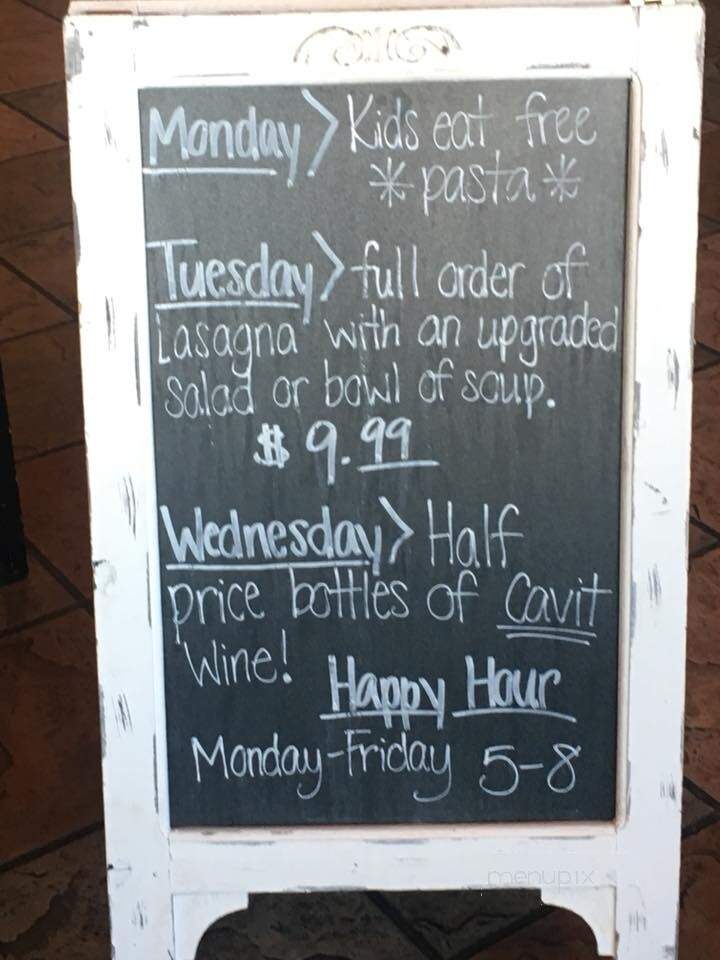 Monday > Kids eat free
* pasta *
Tuesday > full order of
Lasagna with an upgraded
salad or bowl of soup.
$ 9.99
Wednesday > Half
price bottles of Cavit
Wine!
Happy Hour
Monday-Friday 5-8
menupix